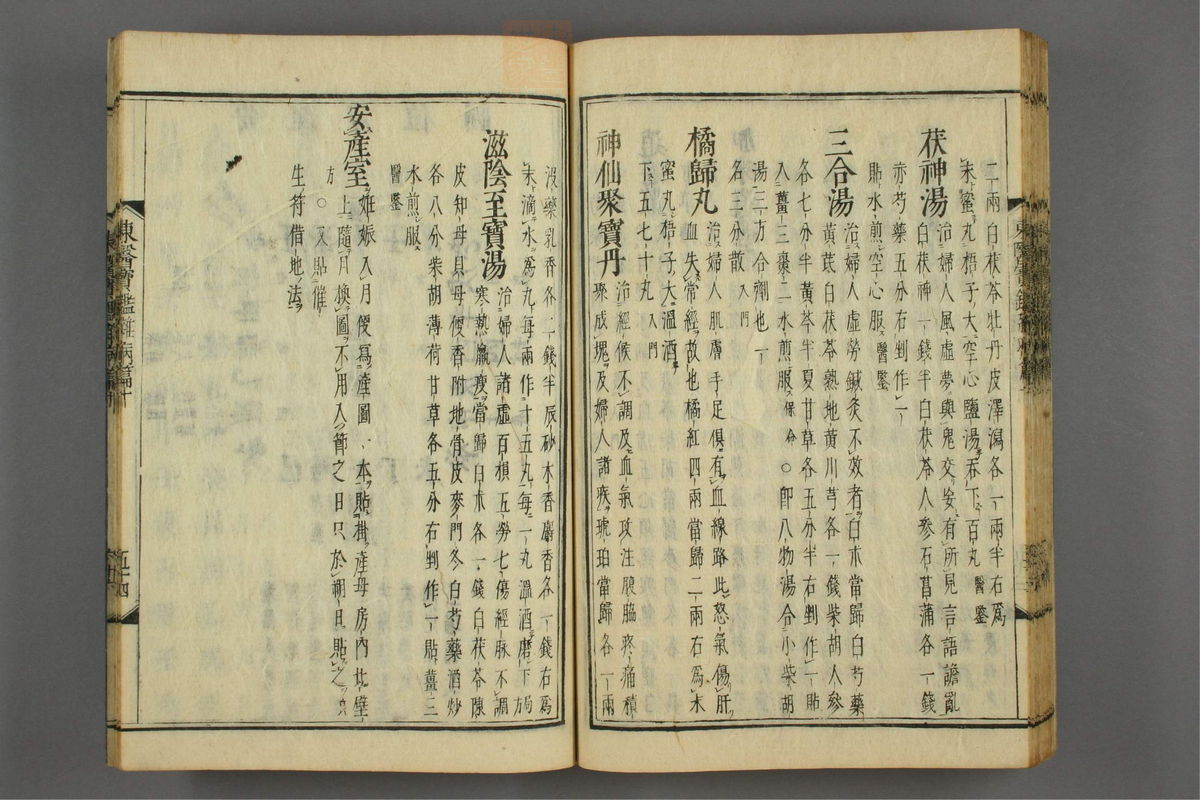 二兩白茯苓牡丹皮澤瀉各一兩半右爲
末蜜丸梧子大空心鹽湯吞下百丸 醫鑒
茯神湯 治婦人風虛夢與鬼交妄有所見言語譫亂
白茯神一錢半白茯苓人參石菖蒲各一錢
赤芍藥五分右剉作一
貼水煎空心服 醫鑒
三合湯 治婦人虛勞鍼灸不效者白朮當歸白芍藥
黃芪白茯苓熟地黃川芎各一錢柴胡人參
各七分黃芩半夏甘草各五分半右剉作一貼
入薑三棗二水煎服 保命 ○卽八物湯合小柴胡
湯三方合劑也一
名三分散 入門
橘歸丸 治婦人肌膚手足俱有血線路此怒氣傷肝
血失常經故也橘紅四兩當歸二兩右爲末
蜜丸梧子大溫酒
下五七十丸 入門
神仙聚寶丹 治經候不調及血氣攻注腹脇疼痛積
聚成塊及婦人諸疾琥珀當歸各一兩
沒藥乳香各二錢半辰砂木香麝香各一錢右爲
末滴水爲丸每兩作十五丸每一丸溫酒磨下 局方
滋陰至寶湯 治婦人諸虛百損五勞七傷經脉不調
寒熱羸瘦當歸白朮各一錢白茯苓陳
皮知母貝母便香附地骨皮麥門冬白芍藥酒炒
各八分柴胡薄荷甘草各五分右剉作一貼薑三
水煎服
醫鑒
安產室 姙娠入月便寫產圖一本貼掛產母房內北壁
上隨月換圖不用入節之日只於朔旦貼之 只
方 ○又貼催
生符借地法
東醫寶鑑雜病篇十
五十四